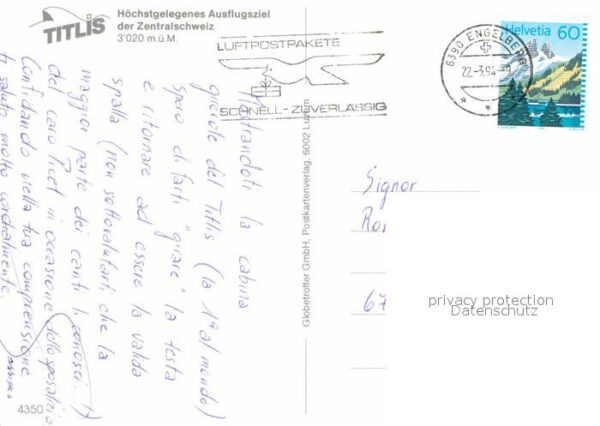 TITLIS
Höchstgelegenes Ausflugsziel
der Zentralschweiz
3'020 m.ü.M.
LUFTPOSTPAKETE
SCHNELL-ZUVERLÄSSIG
6390 ENGELBERG
22.-3.94-9
Helvetia 60
Mostrandoti la cabina
girevole del Titlis (la 1ª al mondo)
spero di farti "girare" la testa
e ritornare ad essere la valida
spalla (non sottovalutarti che la
maggior parte dei canti li conosci..!)
del caro Picet in occasione dello sposalizio
Confidando nella tua comprensione
ti saluto molto cordialmente.
Globetrotter GmbH, Postkartenverlag, 6002 Luzern
Signor
67
privacy protection
Datenschutz
4350